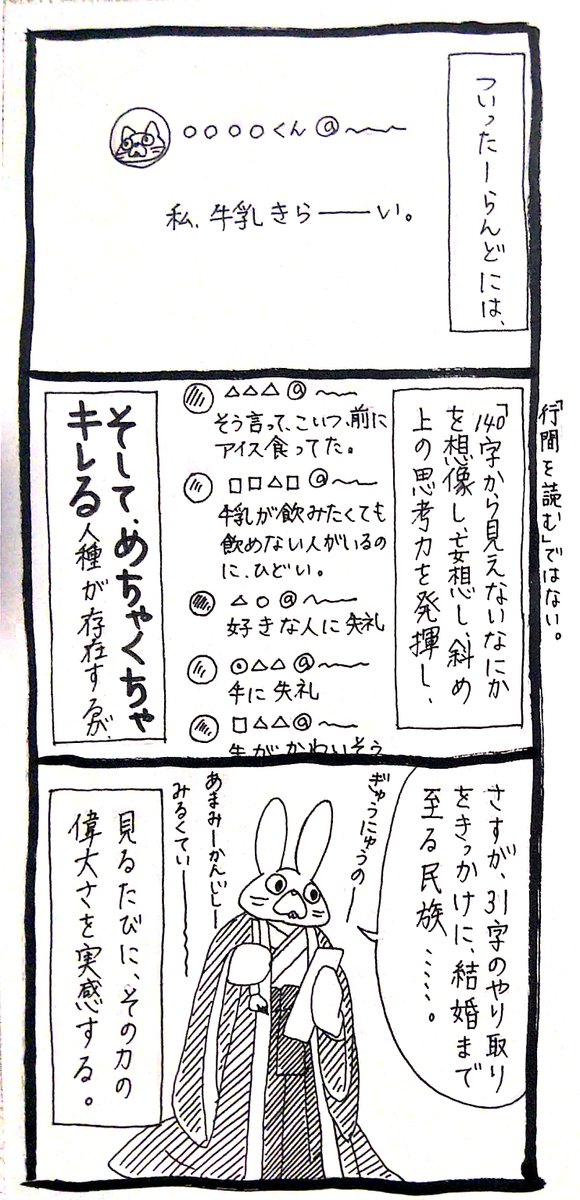 ついったーらんどには、
〇〇〇〇くん @〜〜
私、牛乳きらーーい。
「行間を読む」ではない。
「140字から見えないなにか
を想像し、妄想し、斜め
上の思考力を発揮し、
△△△ @〜
そう言って、こいつ、前に
アイス食ってた。
□□△□ @〜
牛乳が飲みたくても
飲めない人がいるの
に、ひどい。
△〇 @〜
好きな人に失礼
◎△△ @〜
牛に失礼
□△△ @〜
牛がかわいそう
そして、めちゃくちゃ
キレる人種が存在するが、
さすが、31字のやり取り
をきっかけに、結婚まで
至る民族……。
ぎゅうにゅうの一
あまみーかんじしー
みるくてぃーーー
見るたびに、その力の
偉大さを実感する。